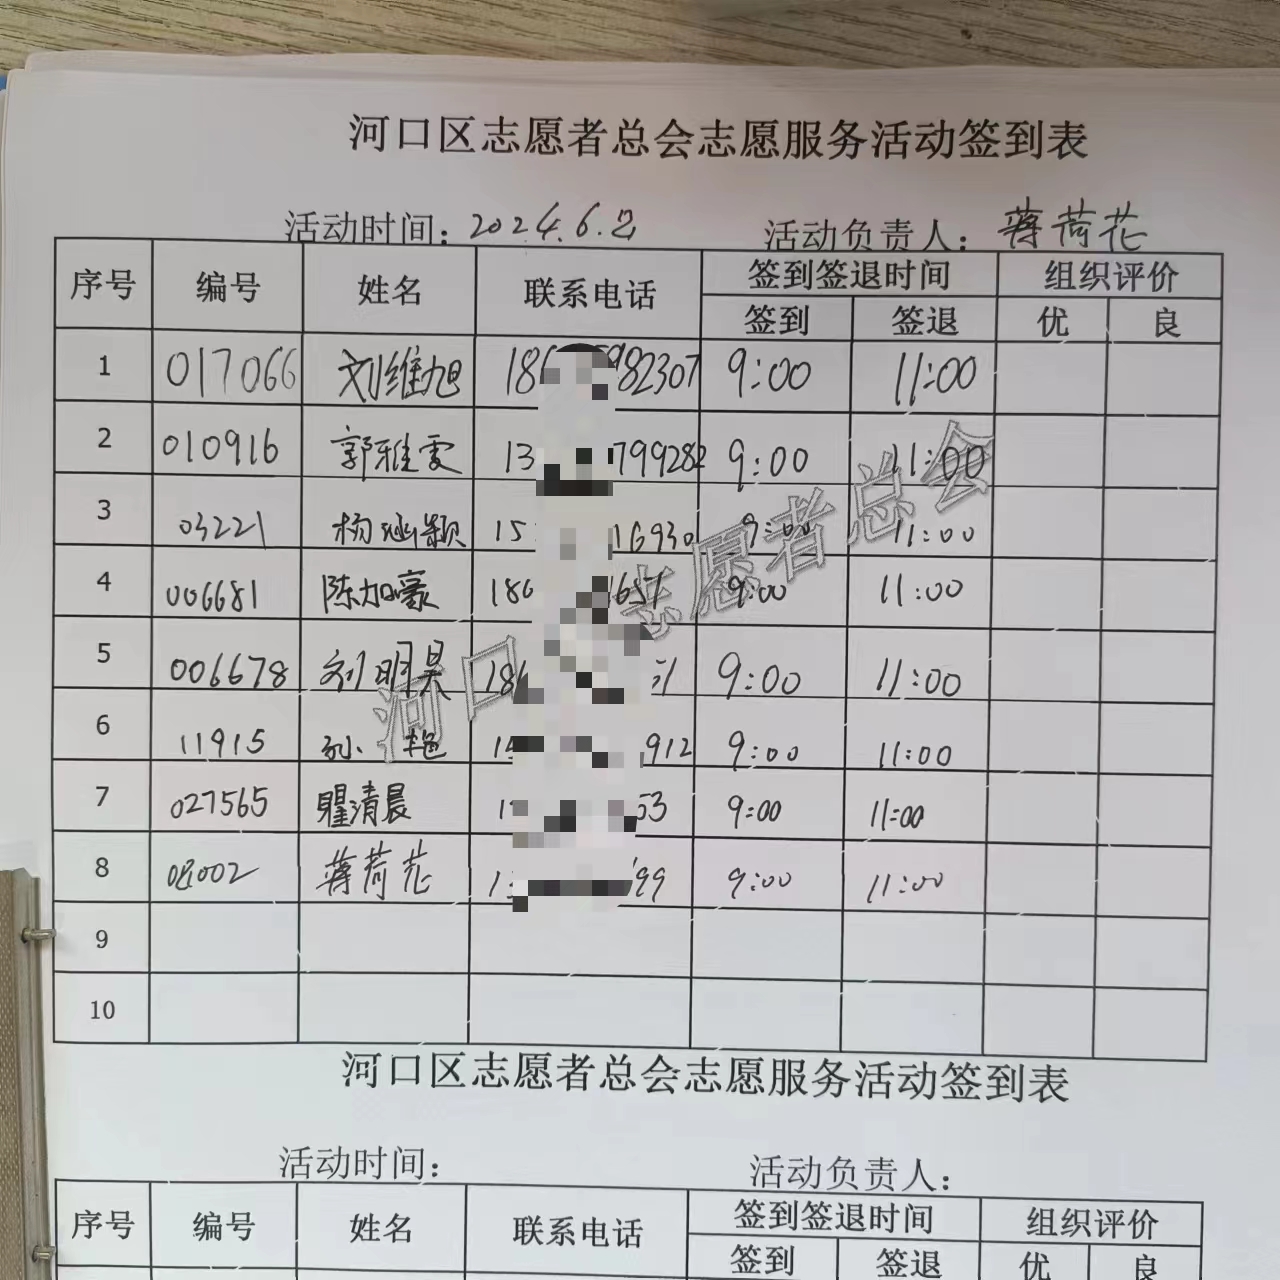 河口区志愿者总会志愿服务活动签到表
活动时间：2024.6.2 活动负责人：蒋荷花
序号 编号 姓名 联系电话 签到签退时间 组织评价
签到 签退 优 良
1 017066 刘维旭 18 982307 9:00 11:00
2 010916 郭雅雯 13 799282 9:00 11:00
3 03221 杨涵颖 15 16930 9:00 11:00
4 006681 陈加豪 186 1657 9:00 11:00
5 006678 刘明昊 186 51 9:00 11:00
6 11915 孙艳 15 912 9:00 11:00
7 027565 瞿清晨 1 53 9:00 11:00
8 08002 蒋荷花 1 99 9:00 11:00
9
10
河口区志愿者总会
河口区志愿者总会志愿服务活动签到表
活动时间： 活动负责人：
序号 编号 姓名 联系电话 签到签退时间 组织评价
签到 签退 优 良